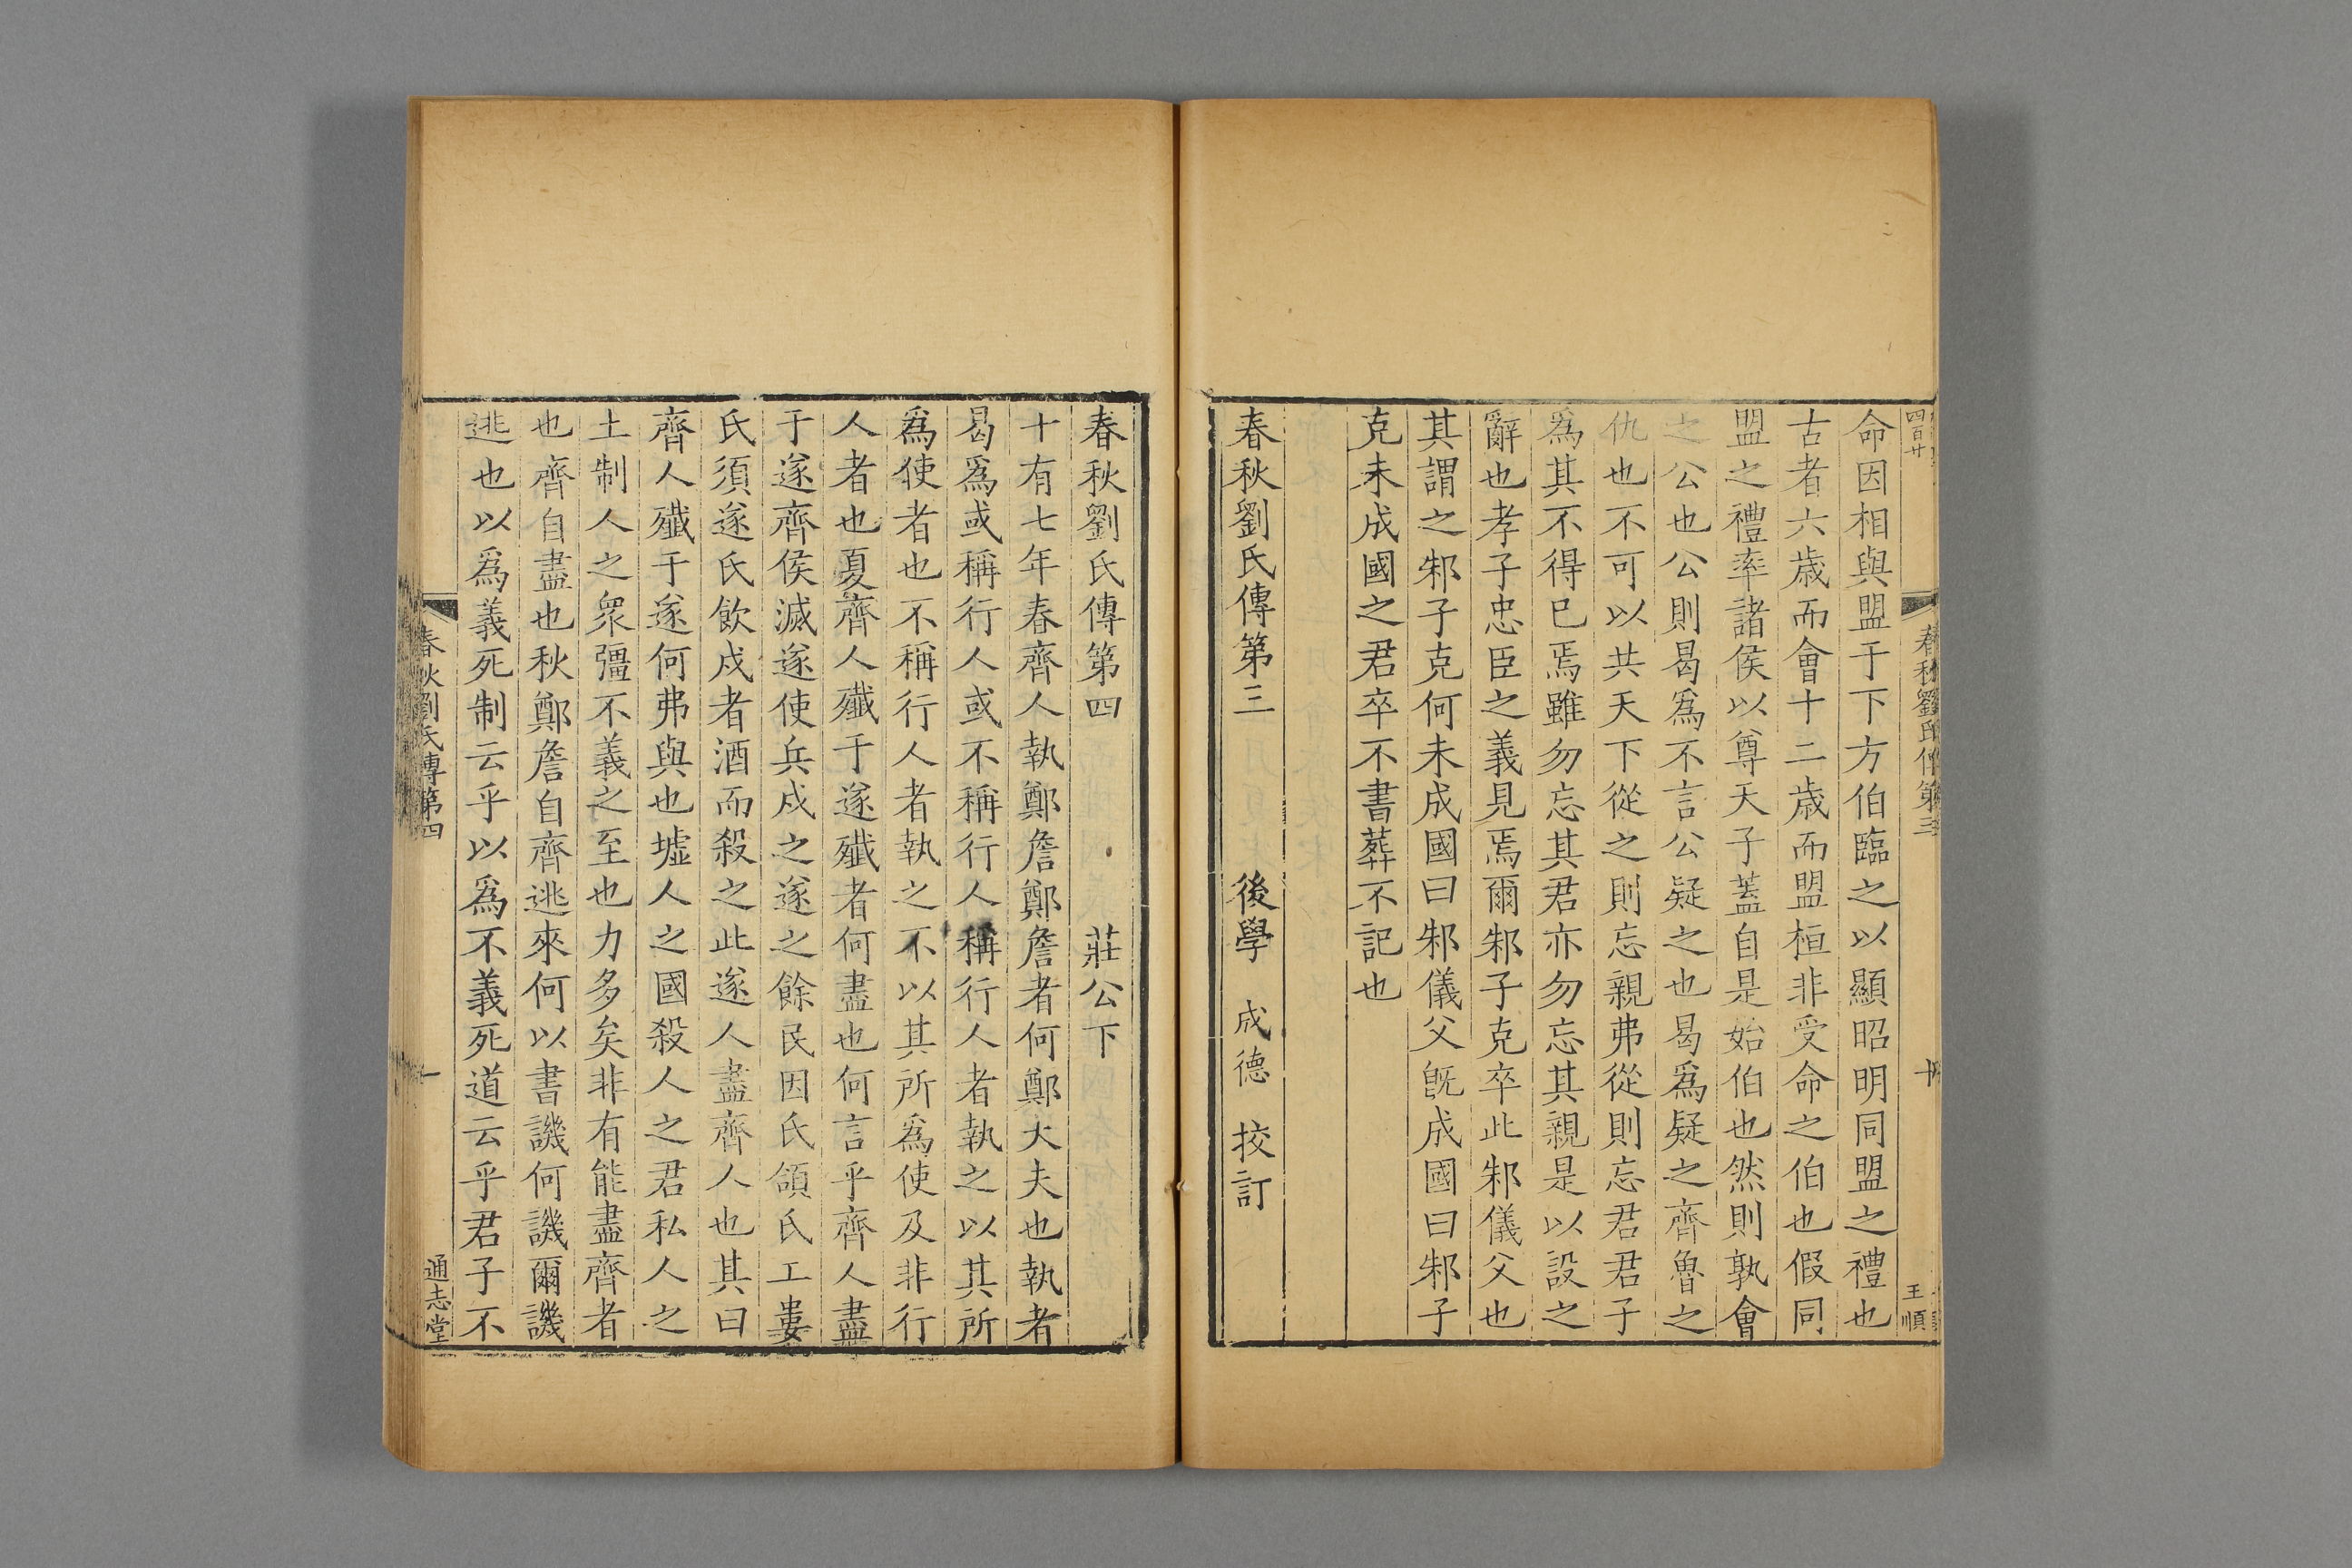 四百廿
春秋劉氏傳第三
王順
命因相與盟于下方伯臨之以顯昭明同盟之禮也
古者六歲而會十二歲而盟桓非受命之伯也假同
盟之禮率諸侯以尊天子蓋自是始伯也然則孰會
之公也公則曷爲不言公疑之也曷爲疑之齊魯之
仇也不可以共天下從之則忘親弗從則忘君君子
爲其不得已焉雖勿忘其君亦勿忘其親是以設之
辭也孝子忠臣之義見焉爾邾子克卒此邾儀父也
其謂之邾子克何未成國曰邾儀父旣成國曰邾子
克未成國之君卒不書葬不記也
春秋劉氏傳第三 後學 成德 挍訂
春秋劉氏傳第四 莊公下
十有七年春齊人執鄭詹鄭詹者何鄭大夫也執者
曷爲或稱行人或不稱行人稱行人者執之以其所
爲使者也不稱行人者執之不以其所爲使及非行
人者也夏齊人殲于遂殲者何盡也何言乎齊人盡
于遂齊侯滅遂使兵戍之遂之餘民因氏頜氏工婁
氏須遂氏飲戍者酒而殺之此遂人盡齊人也其曰
齊人殲于遂何弗與也墟人之國殺人之君私人之
土制人之衆彊不義之至也力多矣非有能盡齊者
也齊自盡也秋鄭詹自齊逃來何以書譏何譏爾譏
逃也以爲義死制云乎以爲不義死道云乎君子不
春秋劉氏傳第四
一
通志堂